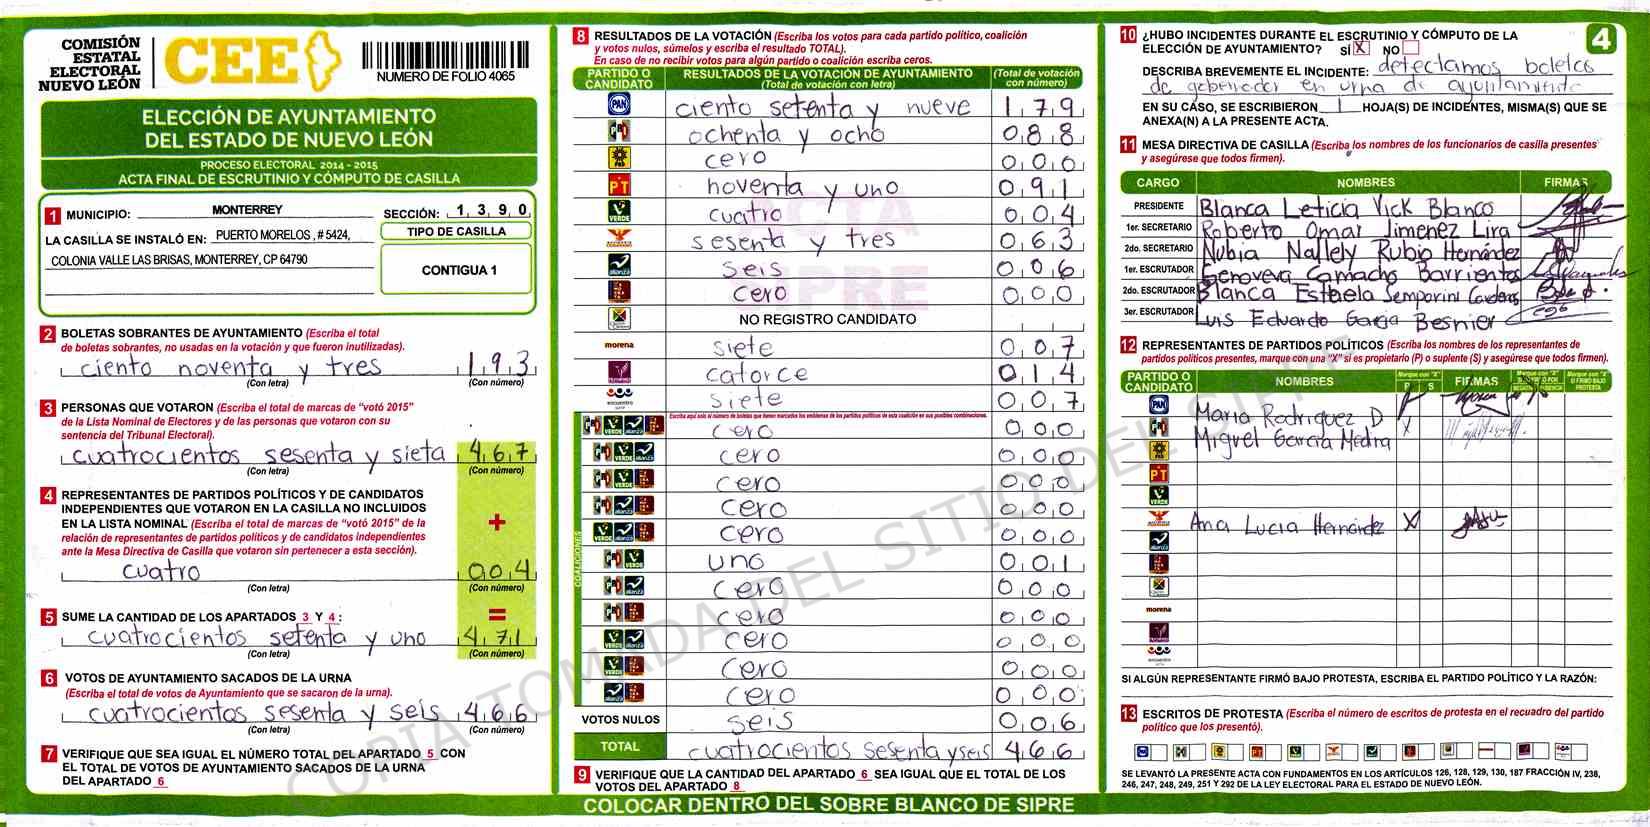 COMISIÓN
ESTATAL
ELECTORAL
NUEVO LEÓN
CEE
NUMERO DE FOLIO 4065
ELECCIÓN DE AYUNTAMIENTO
DEL ESTADO DE NUEVO LEÓN
PROCESO ELECTORAL 2014 - 2015
ACTA FINAL DE ESCRUTINIO Y CÓMPUTO DE CASILLA
1 MUNICIPIO: MONTERREY SECCIÓN: 1,3,9,0
LA CASILLA SE INSTALÓ EN: PUERTO MORELOS , # 5424,
COLONIA VALLE LAS BRISAS, MONTERREY, CP 64790
TIPO DE CASILLA
CONTIGUA 1
2 BOLETAS SOBRANTES DE AYUNTAMIENTO (Escriba el total
de boletas sobrantes, no usadas en la votación y que fueron inutilizadas).
ciento noventa y tres 193
(Con letra) (Con número)
3 PERSONAS QUE VOTARON (Escriba el total de marcas de "votó 2015"
de la Lista Nominal de Electores y de las personas que votaron con su
sentencia del Tribunal Electoral).
cuatrocientos sesenta y sieta 467
(Con letra) (Con número)
4 REPRESENTANTES DE PARTIDOS POLÍTICOS Y DE CANDIDATOS
INDEPENDIENTES QUE VOTARON EN LA CASILLA NO INCLUIDOS
EN LA LISTA NOMINAL (Escriba el total de marcas de "votó 2015" de la
relación de representantes de partidos políticos y de candidatos independientes
ante la Mesa Directiva de Casilla que votaron sin pertenecer a esta sección).
+
cuatro 004
(Con letra) (Con número)
5 SUME LA CANTIDAD DE LOS APARTADOS 3 Y 4 :
=
cuatrocientos setenta y uno 471
(Con letra) (Con número)
6 VOTOS DE AYUNTAMIENTO SACADOS DE LA URNA
(Escriba el total de votos de Ayuntamiento que se sacaron de la urna).
cuatrocientos sesenta y seis 466
(Con letra) (Con número)
7 VERIFIQUE QUE SEA IGUAL EL NÚMERO TOTAL DEL APARTADO 5 CON
EL TOTAL DE VOTOS DE AYUNTAMIENTO SACADOS DE LA URNA
DEL APARTADO 6
8 RESULTADOS DE LA VOTACIÓN (Escriba los votos para cada partido político, coalición
y votos nulos, súmelos y escriba el resultado TOTAL).
En caso de no recibir votos para algún partido o coalición escriba ceros.
PARTIDO O CANDIDATO RESULTADOS DE LA VOTACIÓN DE AYUNTAMIENTO (Total de votación con letra) (Total de votación con número)
PAN ciento setenta y nueve 179
PRI ochenta y ocho 088
PRD cero 000
PT noventa y uno 091
VERDE cuatro 004
sesenta y tres 063
alianza seis 006
cero 000
NO REGISTRO CANDIDATO
morena siete 007
catorce 014
encuentro siete 007
Escriba aquí solo el número de boletas que tienen marcados los emblemas de los partidos políticos de esta coalición en sus posibles combinaciones.
COALICIONES
cero 000
cero 000
cero 000
cero 000
cero 000
uno 001
cero 000
cero 000
cero 000
cero 000
cero 000
VOTOS NULOS seis 006
TOTAL cuatrocientos sesenta y seis 466
9 VERIFIQUE QUE LA CANTIDAD DEL APARTADO 6 SEA IGUAL QUE EL TOTAL DE LOS
VOTOS DEL APARTADO 8
ACTA
SIPRE
10 ¿HUBO INCIDENTES DURANTE EL ESCRUTINIO Y CÓMPUTO DE LA
ELECCIÓN DE AYUNTAMIENTO? SÍ X NO
4
DESCRIBA BREVEMENTE EL INCIDENTE: detectamos boletas
de gobernador en urna de ayuntamiento
EN SU CASO, SE ESCRIBIERON 1 HOJA(S) DE INCIDENTES, MISMA(S) QUE SE
ANEXA(N) A LA PRESENTE ACTA.
11 MESA DIRECTIVA DE CASILLA (Escriba los nombres de los funcionarios de casilla presentes
y asegúrese que todos firmen).
CARGO NOMBRES FIRMAS
PRESIDENTE Blanca Leticia Vick Blanco
1er. SECRETARIO Roberto Omar Jimenez Lira
2do. SECRETARIO Nubia Nallely Rubio Hernández
1er. ESCRUTADOR Genoveva Camacho Barrientos
2do. ESCRUTADOR Blanca Esthela Semporini Cardenas
3er. ESCRUTADOR Luis Eduardo Garcia Besnier
12 REPRESENTANTES DE PARTIDOS POLÍTICOS (Escriba los nombres de los representantes de
partidos políticos presentes, marque con una "X" si es propietario (P) o suplente (S) y asegúrese que todos firmen).
PARTIDO O CANDIDATO NOMBRES Marque con "X" P S FIRMAS
PAN Maria Rodriguez D
PRI Miguel Garcia Medina X
PRD
PT
VERDE
Ana Lucia Hernández X
alianza
morena
encuentro
SI ALGÚN REPRESENTANTE FIRMÓ BAJO PROTESTA, ESCRIBA EL PARTIDO POLÍTICO Y LA RAZÓN:
13 ESCRITOS DE PROTESTA (Escriba el número de escritos de protesta en el recuadro del partido
político que los presentó).
SE LEVANTÓ LA PRESENTE ACTA CON FUNDAMENTOS EN LOS ARTÍCULOS 126, 128, 129, 130, 187 FRACCIÓN IV, 238,
246, 247, 248, 249, 251 Y 292 DE LA LEY ELECTORAL PARA EL ESTADO DE NUEVO LEÓN.
COLOCAR DENTRO DEL SOBRE BLANCO DE SIPRE
COPIA TOMADA DEL SITIO DEL SIPRE